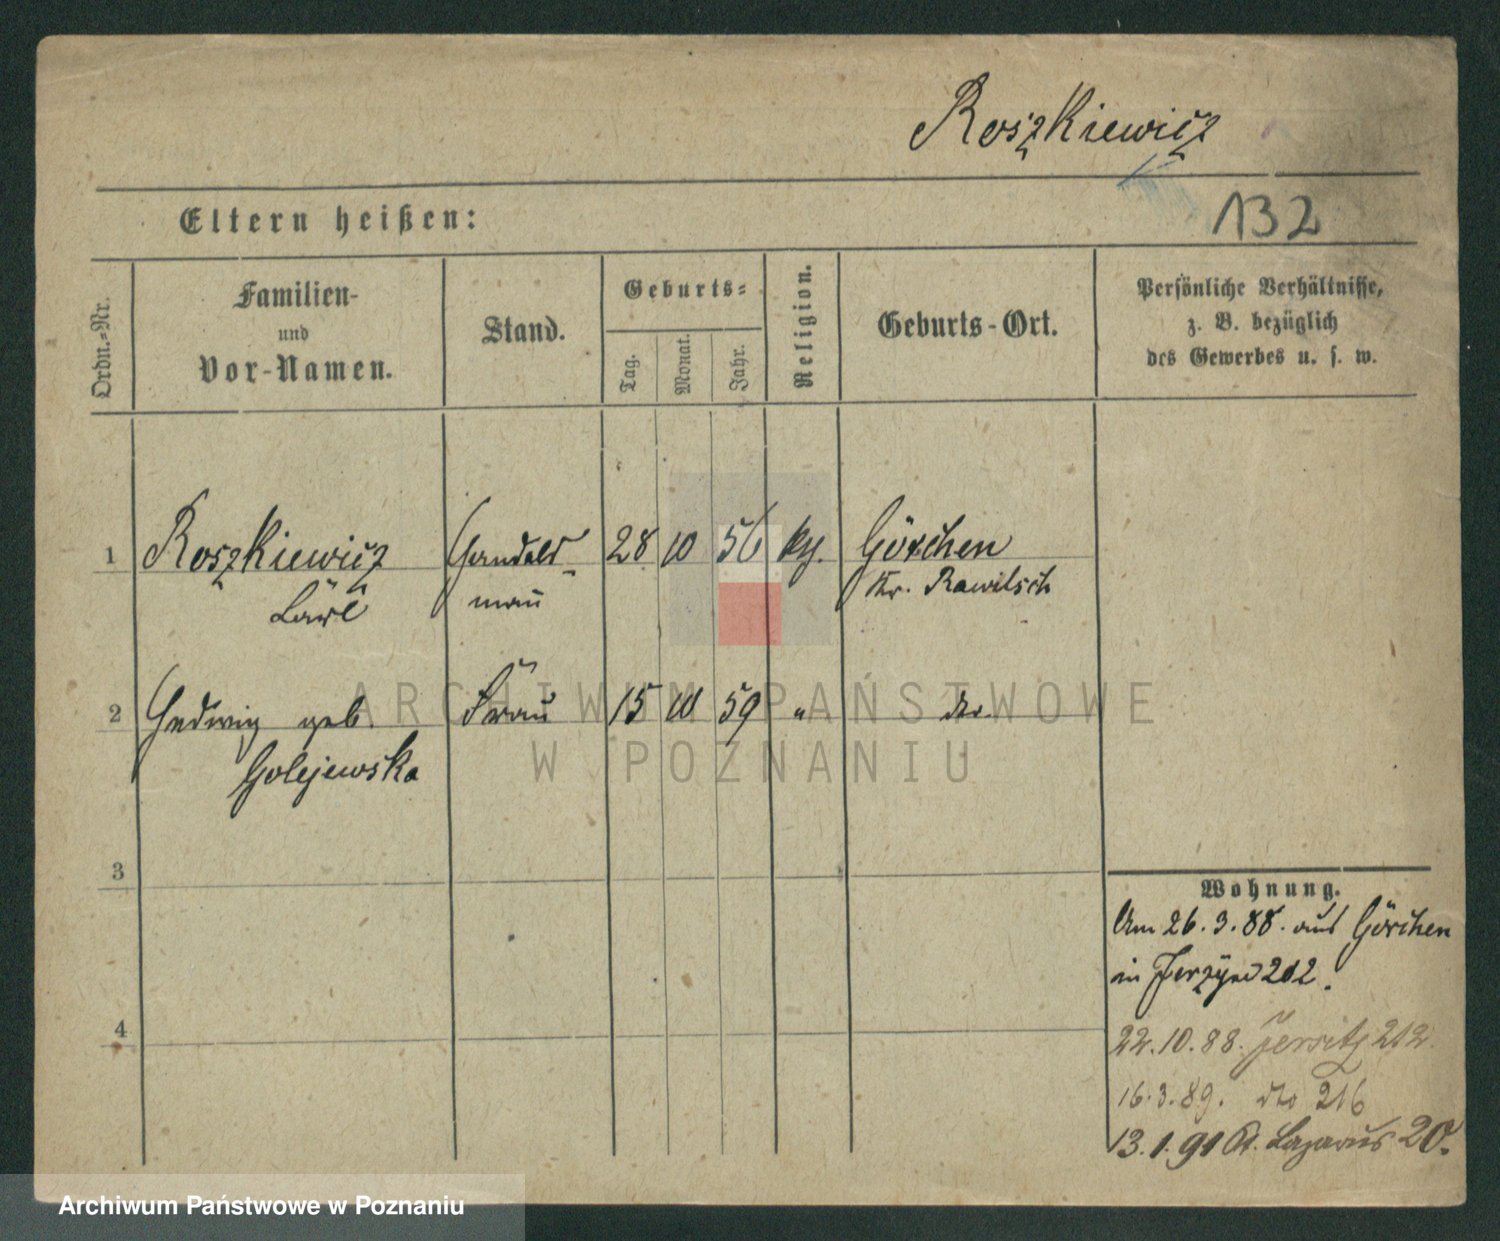 Roszkiewicz
132
Eltern heißen:
Ordn.-Nr.
Familien-
und
Vor-Namen.
Stand.
Geburts-
Tag.
Monat.
Jahr.
Religion.
Geburts-Ort.
Persönliche Verhältnisse,
z. B. bezüglich
des Gewerbes u. s. w.
1 Roszkiewicz Handels- 28 10 56 Görchen
mann Kr. Rawitsch
2 Hedwig geb. Frau 15 10 59 " dto.
Golejewska
3
4
Wohnung.
Am 26.3.88. aus Görchen
in 212.
22.10.88. Jersitz 212.
16.3.89. dto 216
13.1.91 St. Lazarus 20.
ARCHIWUM PAŃSTWOWE
W POZNANIU
Archiwum Państwowe w Poznaniu